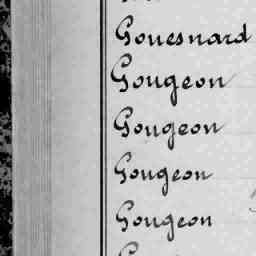 Gouesnard
Gougeon
Gougeon
Gougeon
Gougeon